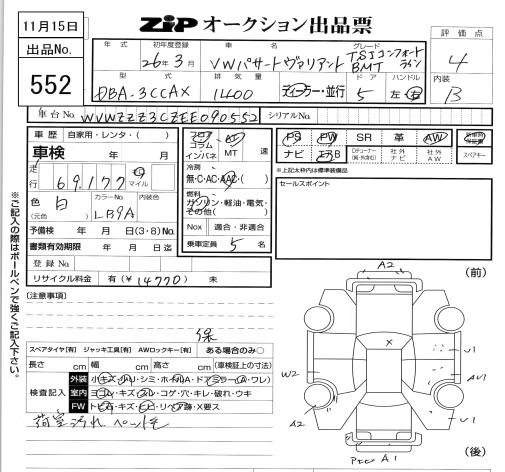 11月15日
ZIPオークション出品票
出品No.
552
年式
初年度登録
車名
グレード
評価点
26年3月
VWパサートヴァリアント
TSIコンフォートライン
BMT
4
型式
排気量
ドア
ハンドル
内装
DBA-3CCAX
1400
ディーラー・並行
5
左・右
B
車台No.
WVWZZZ3CZEE090552
シリアルNo.
車歴
自家用・レンタ・( )
フロア
コラム
インパネ
AT
MT
速
PS
PW
SR
革
AW
ナビ
エアB
社外
ナビ
社外
AW
スペアキー
車検
年 月
走行
69,177
マイル
冷房
無・C・AC・AAC・( )
※上記太枠内は標準装備品
色
(元色)
白
カラーNo.
LB9A
内装色
燃料
ガソリン・軽油・電気・
その他( )
セールスポイント
予備検
年 月 日(3・8)No.
Nox
適合・非適合
書類有効期限
年 月 日迄
乗車定員
5名
登録No.
リサイクル料金
有(¥14770)
未
(注意事項)
保
スペアタイヤ[有] ジャッキ工具[有] AWロックキー[有]
ある場合のみ〇
長さ cm 幅 cm 高さ cm (車検証上の寸法)
検査記入
外装
小キズ・小凹・シミ・ホイルA・ドアミラー(A・ワレ)
室内
ヨゴレ・キズ・スレ・コゲ・穴・キレ・破れ・ウキ
FW
トビ石・キズ・ヒビ・リペア跡・X要ス
荷室汚れ ペットモ
※ご記入の際はボールペンで強くご記入下さい。
(前)
A2
×
U1
W2
AU1
A2
U1
A1
(後)